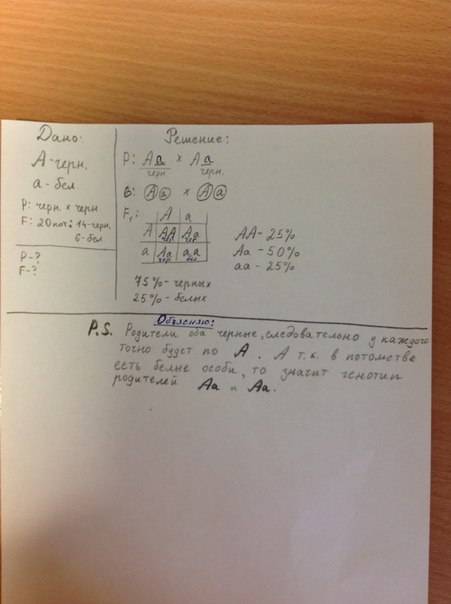 Дано:
А - черн.
а - бел.
Р: черн. х черн
F: 20 пот: 14-черн.
6-бел
Р-?
F-?
Решение:
Р: Аа х Аа
черн. черн.
G: А а х А а
F₁:
А а
А АА Аа
чер. чер.
а Аа аа
чер. бел.
АА - 25%
Аа - 50%
аа - 25%
75% - черных
25% - белых
Объясняю:
P.S. Родители оба черные, следовательно у каждого
точно будет по А. А т.к. в потомстве
есть белые особи, то значит генотип
родителей Аа и Аа.